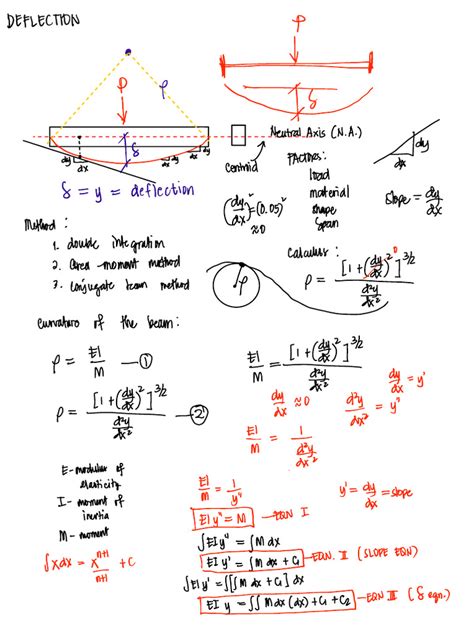 DEFLECTION
P
P
ρ
δ
δ
Neutral Axis (N.A.)
Centroid
dy
dx
dy
dx
dx
dy
dy
dx
δ = y = deflection
FACTORS:
load
material
shape
span
(dy/dx)² = (0.05)²
≈0
slope = dy/dx
Method:
1. double integration
2. Area-moment method
3. Conjugate beam method
Calculus:
ρ
ρ = [1+(dy/dx)²]^3/2 / d²y/dx²
0
Curvature of the beam:
ρ = EI/M — ①
ρ = [1+(dy/dx)²]^3/2 / d²y/dx² — ②
EI/M = [1+(dy/dx)²]^3/2 / d²y/dx²
dy/dx = y'
dy/dx ≈0
d²y/dx² = y''
EI/M = 1 / d²y/dx²
E - modulus of
elasticity
I - moment of
inertia
M - moment
∫xdx = x^n+1/n+1 + C
EI/M = 1/y''
y' = dy/dx = slope
EI y'' = M — EQN I
∫EI y'' = ∫M dx
EI y' = ∫M dx + C₁ — EQN. II (SLOPE EQN)
∫EI y' = ∫[∫M dx + C₁] dx
EI y = ∫∫ M dx (dx) + C₁ + C₂ — EQN III (δ eqn.)